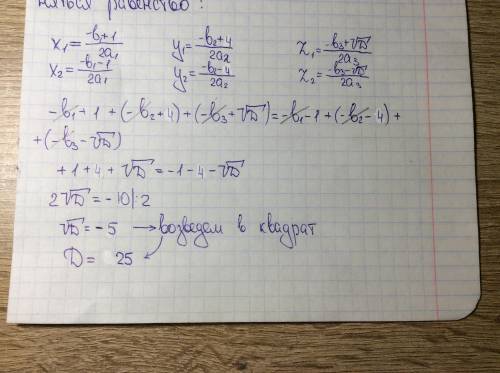 няться равенство:
x₁ = (-b₁+1)/(2a₁) y₁ = (-b₂+4)/(2a₂) z₁ = (-b₃+√D)/(2a₃)
x₂ = (-b₁-1)/(2a₁) y₂ = (-b₂-4)/(2a₂) z₂ = (-b₃-√D)/(2a₃)
-b₁ + 1 + (-b₂+4) + (-b₃+√D) = -b₁ - 1 + (-b₂ - 4) +
+ (-b₃ - √D)
+1+4+√D = -1-4-√D
2√D = -10 |:2
√D = -5 → возведем в квадрат
D = 25